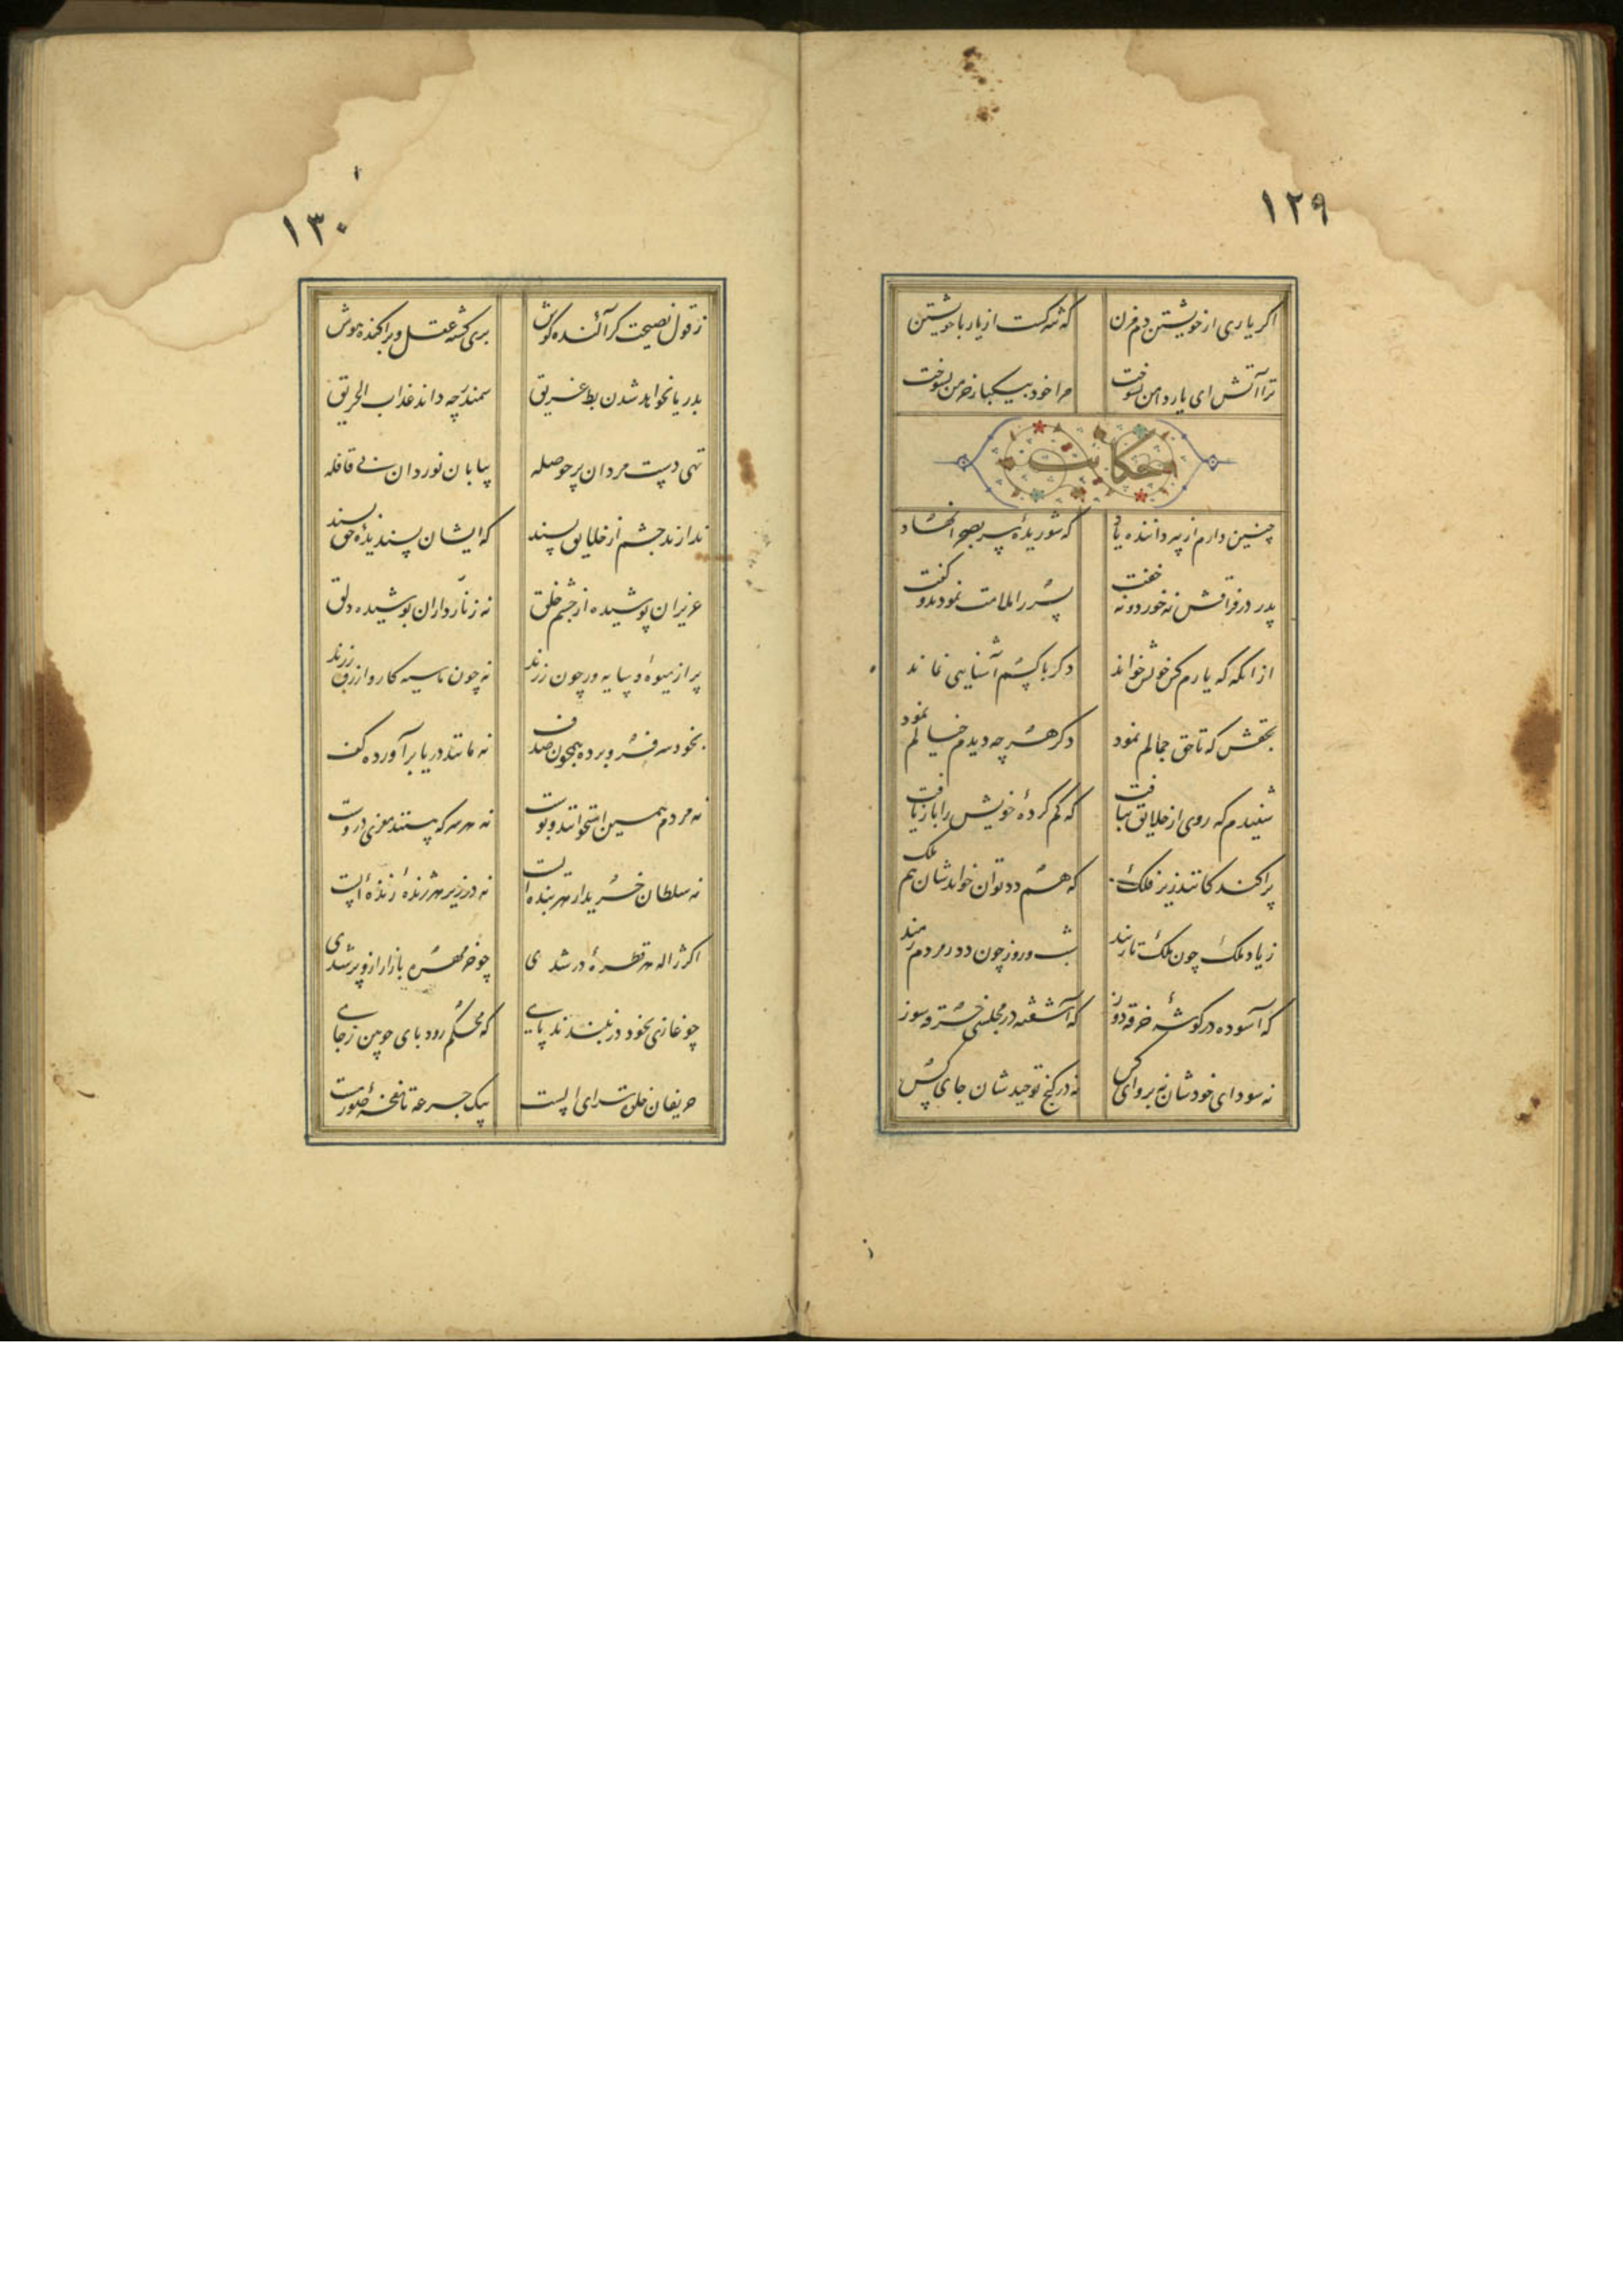 ۱۲۹
اگر یاری از خویشتن دم مزن که شرکست از یار با خویشتن
ترا آتش ای یار دامن بسوخت مرا خود بیکبار خرمن بسوخت
حکایت
چنین دارم از پیر داننده یاد که شوریده سر بصحرا نهاد
پدر در فراقش نه خورد و نه خفت پسر را ملامت نمودند و گفت
از انگه که یارم کس خویش خواند دگر با کسم آشنایی نماند
بحقش که تا حق جمالم نمود دگر هر چه دیدم خیالم نمود
شنیدم که روی از خلایق بتافت که گم کردهٔ خویش را باز یافت
پراکندگانند زیر فلک که هم دد توان خواندشان هم ملک
ز یاد ملک چون ملک نارمند شب و روز چون دد ز مردم رمند
که آسوده در گوشهٔ خرقه دوز که آشفته در مجلسی خرقه سوز
نه سودای خودشان نه پروای کس نه در کنج توحیدشان جای کس
۱۳۰
ز قول نصیحت گر آکنده گوش بری گشته عقل و پراکنده هوش
بدریا نخواهد شدن بط غریق سمندر چه داند عذاب الحریق
تهی دست مردان پر حوصله بیابان نوردان بی قافله
ندارند چشم از خلایق پسند که ایشان پسندیدهٔ حق بسند
عزیزان پوشیده از چشم خلق نه زنّارداران پوشیده دلق
پر از میوه و سایه ور چون رزند نه چون ما سیه کار و ازرق رزند
بخود سر فرو برده همچون صدف نه مانند دریا برآورده کف
نه مردم همین استخوانند و پوست نه هر سرکه بینند مغزی دروست
نه سلطان خریدار هر بنده ایست نه در زیر هر ژندهٔ زندهٔ ایست
اگر ژاله هر قطرهٔ در شدی چو خرمهره بازار ازو پر شدی
چو غازی بخود در نبندند پای که محکم رود پای چوبین ز جای
حریفان خلوت سرای الست بیک جرعه تا نفخهٔ صور مست